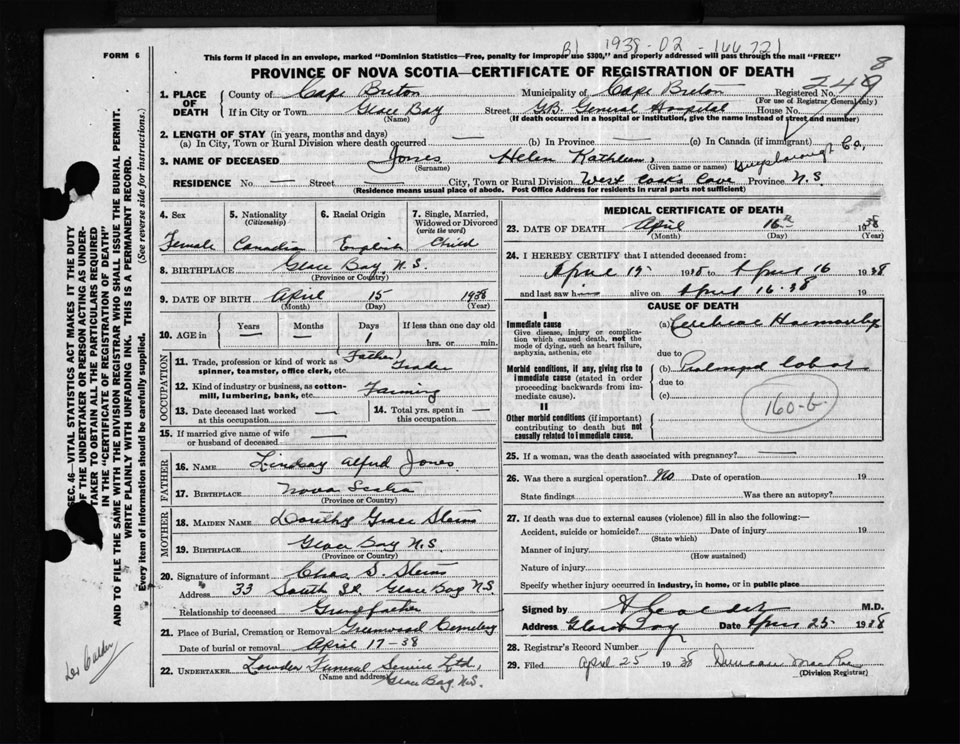 B1 1938-02-166721
FORM 6
This form if placed in an envelope, marked "Dominion Statistics—Free, penalty for improper use $300," and properly addressed will pass through the mail "FREE"
PROVINCE OF NOVA SCOTIA—CERTIFICATE OF REGISTRATION OF DEATH
1. PLACE OF DEATH
County of Cape Breton Municipality of Cape Breton Registered No.
(For use of Registrar General only)
If in City or Town Glace Bay Street G.B. General Hospital House No.
(Name) (If death occurred in a hospital or institution, give the name instead of street and number)
2. LENGTH OF STAY (in years, months and days)
(a) In City, Town or Rural Division where death occurred — (b) In Province — (c) In Canada (if immigrant)
3. NAME OF DECEASED Jones Helen Kathleen, Guysborough Co,
(Surname) (Given name or names)
RESIDENCE No. — Street — City, Town or Rural Division West Cook's Cove Province N.S.
(Residence means usual place of abode. Post Office Address for residents in rural parts not sufficient)
4. Sex
Female
5. Nationality
(Citizenship)
Canadian
6. Racial Origin
English
7. Single, Married, Widowed or Divorced
(write the word)
Child
8. BIRTHPLACE Glace Bay, N.S.
(Province or Country)
9. DATE OF BIRTH April 15 1938
(Month) (Day) (Year)
10. AGE in Years Months Days If less than one day old
— — 1 hrs. or min.
OCCUPATION
11. Trade, profession or kind of work as spinner, teamster, office clerk, etc. (Father)
12. Kind of industry or business, as cotton-mill, lumbering, bank, etc. Farming
13. Date deceased last worked at this occupation —
14. Total yrs. spent in this occupation —
15. If married give name of wife or husband of deceased —
FATHER
16. NAME Lindsay Alfred Jones
17. BIRTHPLACE Nova Scotia
(Province or Country)
MOTHER
18. MAIDEN NAME Dorothy Grace
19. BIRTHPLACE Glace Bay N.S.
(Province or Country)
20. Signature of informant Chas S.
Address 33 South St. Glace Bay N.S.
Relationship to deceased Grandfather
21. Place of Burial, Cremation or Removal Greenwood Cemetery
Date of burial or removal April 17-38
22. UNDERTAKER Funeral Service Ltd,
(Name and address) Glace Bay N.S.
MEDICAL CERTIFICATE OF DEATH
23. DATE OF DEATH April 16 1938
(Month) (Day) (Year)
24. I HEREBY CERTIFY that I attended deceased from:
April 15 1938 to April 16 1938
and last saw him alive on April 16-38 19
CAUSE OF DEATH
I
Immediate cause
Give disease, injury or complication which caused death, not the mode of dying, such as heart failure, asphyxia, asthenia, etc
(a) Cerebral
due to
Morbid conditions, if any, giving rise to immediate cause (stated in order proceeding backwards from immediate cause).
(b) Prolonged labour
due to
(c)
160-b
II
Other morbid conditions (if important) contributing to death but not causally related to immediate cause.
25. If a woman, was the death associated with pregnancy? —
26. Was there a surgical operation? No Date of operation 19
State findings Was there an autopsy?
27. If death was due to external causes (violence) fill in also the following:—
Accident, suicide or homicide? Date of injury 19
(State which)
Manner of injury
(How sustained)
Nature of injury
Specify whether injury occurred in industry, in home, or in public place
Signed by M.D.
Address Glace Bay Date April 25 1938
28. Registrar's Record Number
29. Filed April 25 1938 Duncan MacRae
(Division Registrar)
SEC. 46—VITAL STATISTICS ACT MAKES IT THE DUTY
OF THE UNDERTAKER OR PERSON ACTING AS UNDER-
TAKER TO OBTAIN ALL THE PARTICULARS REQUIRED
IN THE "CERTIFICATE OF REGISTRATION OF DEATH"
AND TO FILE THE SAME WITH THE DIVISION REGISTRAR WHO SHALL ISSUE THE BURIAL PERMIT.
WRITE PLAINLY WITH UNFADING INK. THIS IS A PERMANENT RECORD.
Every item of information should be carefully supplied. (See reverse side for instructions.)